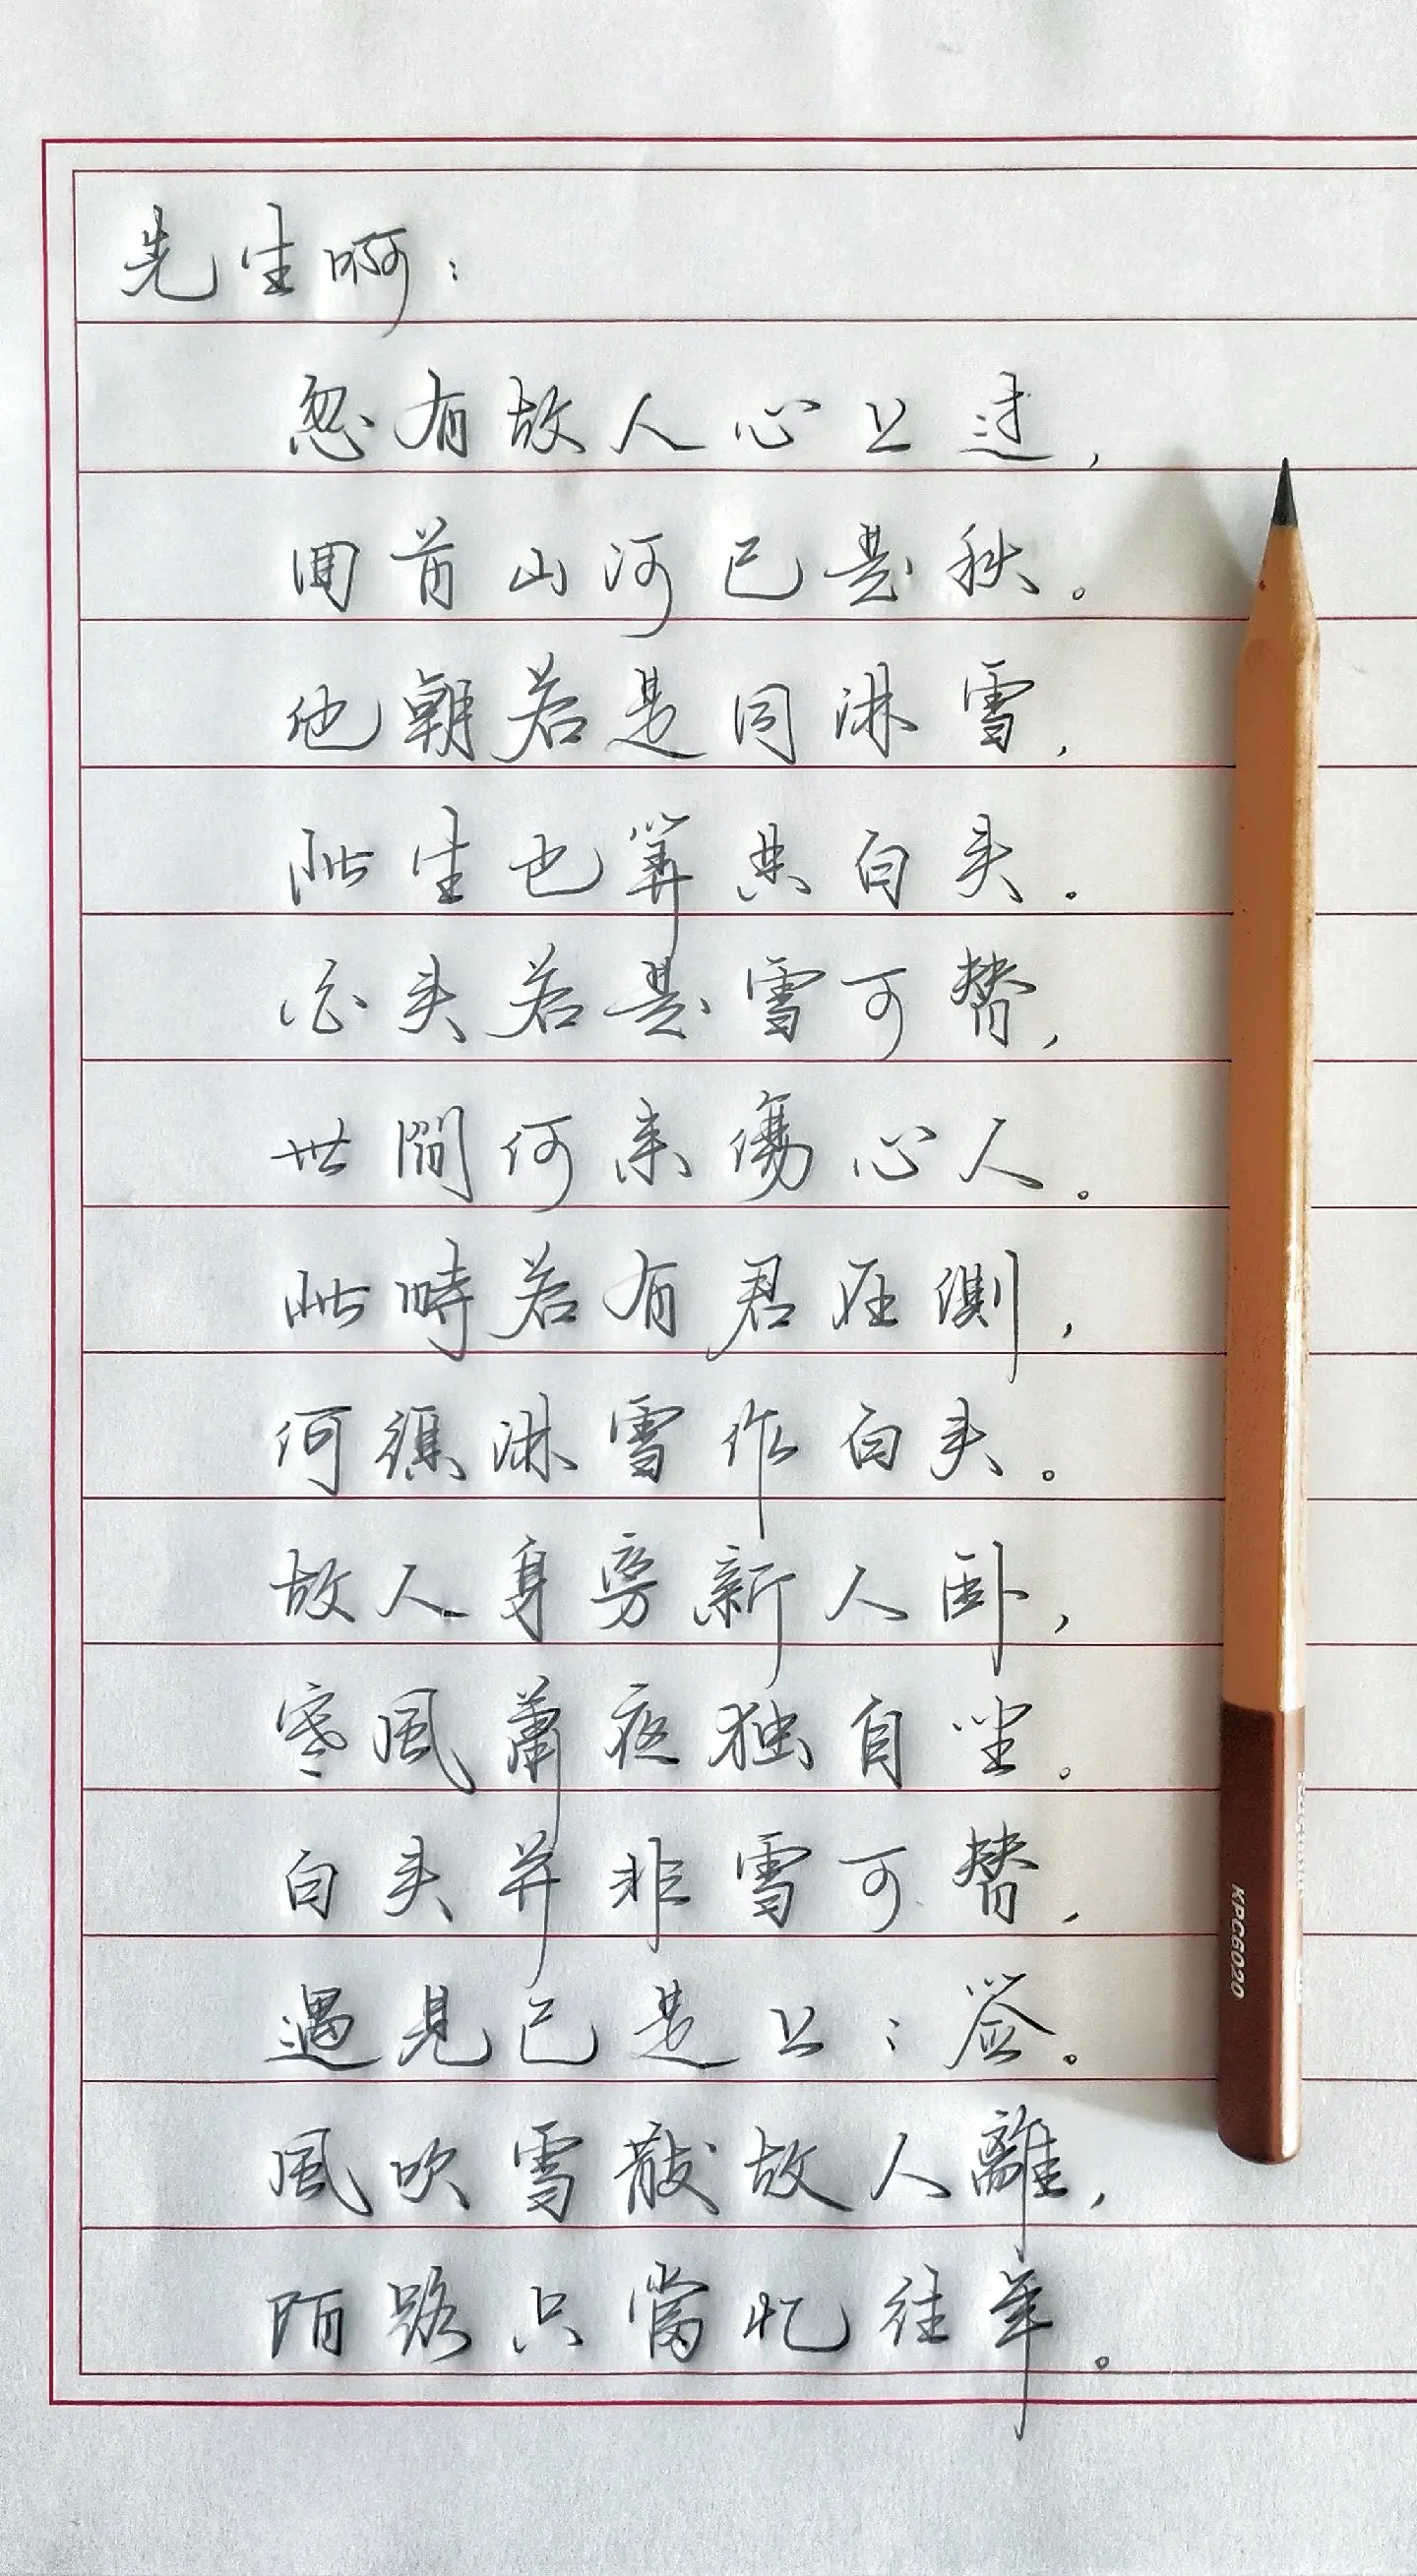 先生啊：
忽有故人心上过，
回首山河已是秋。
他朝若是同淋雪，
此生也算共白头。
白头若是雪可替，
世間何来傷心人。
此時若有君在側，
何須淋雪作白头。
故人身旁新人卧，
寒風蕭夜独自坐。
白头并非雪可替，
遇見已是上：签。
風吹雪散故人離，
陌路只當忆往年。
KPC6020